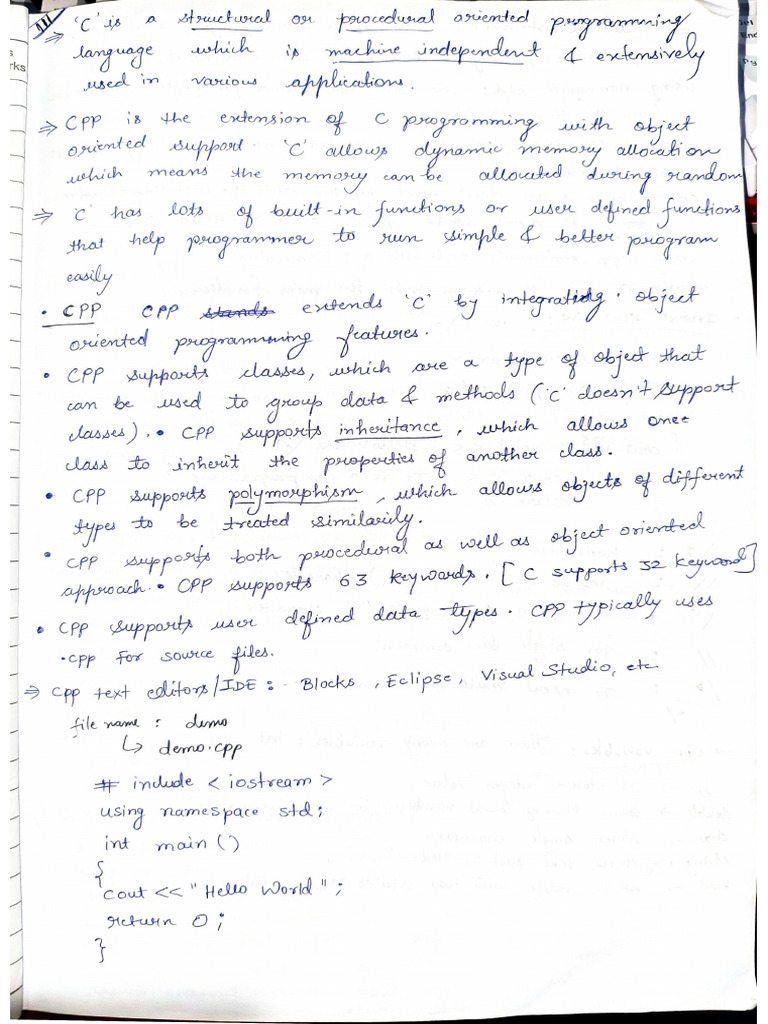 ⇒ 'C' is a structural or procedural oriented programming
language which is machine independent & extensively
used in various applications.
⇒ CPP is the extension of C programming with object
oriented support. 'C' allows dynamic memory allocation
which means the memory can be allocated during random
⇒ 'C' has lots of built-in functions or user defined functions
that help programmer to run simple & better program
easily
• CPP CPP stands extends 'C' by integrating. object
oriented programming features.
• CPP supports classes, which are a type of object that
can be used to group data & methods ('C' doesn't support
classes). • CPP supports inheritance, which allows one
class to inherit the properties of another class.
• CPP supports polymorphism, which allows objects of different
types to be treated similarily.
• CPP supports both procedural as well as object oriented
approach. • CPP supports 63 keywords. [C supports 32 keyword]
• CPP supports user defined data types. CPP typically uses
.cpp for source files.
⇒ CPP text editors/IDE: Blocks, Eclipse, Visual Studio, etc.
file name : demo
↳ demo.cpp
# include <iostream>
using namespace std;
int main ()
{
cout << "Hello World";
return 0;
}